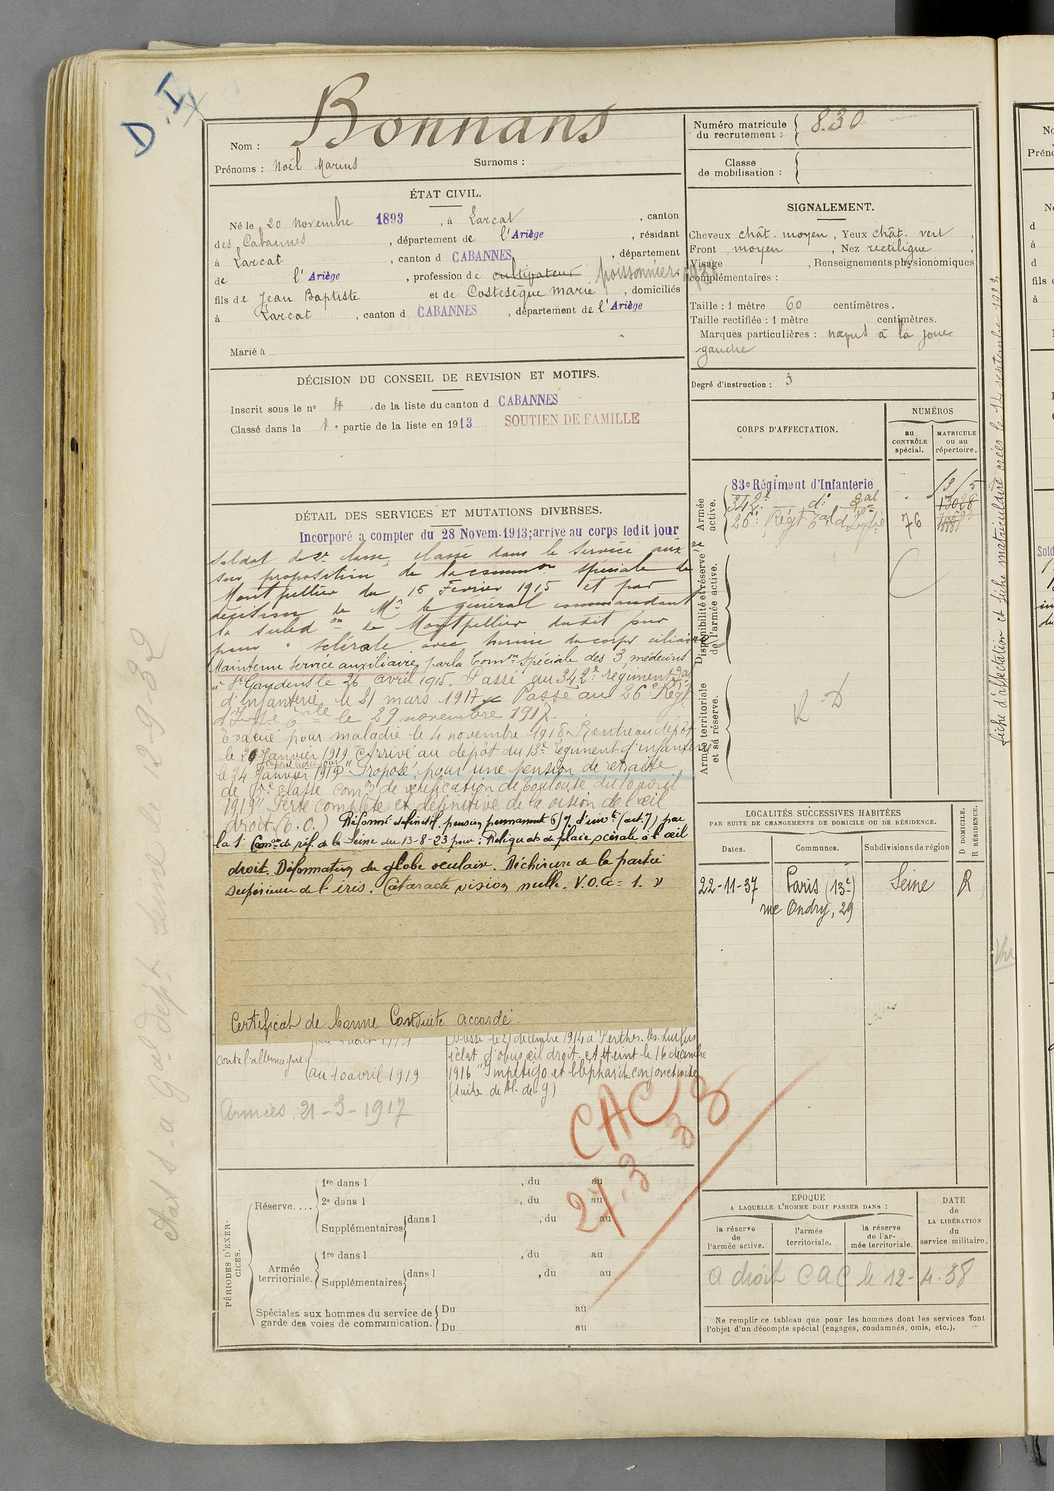 D.I
Bonnans
Nom :
Prénoms : Noël Marius Surnoms :
Numéro matricule du recrutement : 830
Classe de mobilisation :
ÉTAT CIVIL.
Né le 20 novembre 1893, à Larcat, canton
des Cabannes, département de l'Ariège, résidant
à Larcat, canton d CABANNES, département
de l'Ariège, profession de cultivateur poissonnier
fils de Jean Baptiste et de Costesèque Marie, domiciliés
à Larcat, canton d CABANNES, département de l'Ariège
Marié à
SIGNALEMENT.
Cheveux chât. moyen, Yeux chât. vert,
Front moyen, Nez rectiligne,
Visage , Renseignements physionomiques
complémentaires :
Taille : 1 mètre 60 centimètres.
Taille rectifiée : 1 mètre centimètres.
Marques particulières : nœvus à la joue
gauche
Degré d'instruction : 3
DÉCISION DU CONSEIL DE REVISION ET MOTIFS.
Inscrit sous le n° 4 de la liste du canton d CABANNES
Classé dans la 1e partie de la liste en 1913 SOUTIEN DE FAMILLE
CORPS D'AFFECTATION.
NUMÉROS
au contrôle spécial.
MATRICULE ou au répertoire.
Armée active.
83e Régiment d'Infanterie
342e d°
26e Régt 76
Disponibilité et réserve de l'armée active.
Armée territoriale et sa réserve.
R D
DÉTAIL DES SERVICES ET MUTATIONS DIVERSES.
Incorporé a compter du 28 Novem. 1913; arrive au corps ledit jour
soldat de 2e classe, classé dans le service aux
sur proposition de la common spéciale de
Montpellier du 16 Février 1915 et par
décision de Mr le général commandant
la subdon de Montpellier dudit jour
pour sclérale avec hernie du corps ciliaire
Maintenu service auxiliaire par la Comon Spéciale des 3 médecins
à St Gaudens le 26 avril 1915. Passé au 342e régiment
d'infanterie le 21 mars 1917. Passé au 26e Régt
le 29 novembre 1917.
Evacué pour maladie le 4 novembre 1918. Rentré au dépôt
le 20 Janvier 1919. Arrivé au dépôt du régiment d'infanterie
le 24 Janvier 1919 "Proposé pour une pension de retraite
de classe comon de vérification de Toulouse du 10 avril
1919" Perte complète et définitive de la vision de l'œil
droit (O.O.) Réformé définitif, pension permanent 65% d'invté (art. 7) par
la 1e Comon de réf. de la Seine du 13-8-23 pour : Reliquat de plaie sclérale à l'œil
droit. Déformation du globe oculaire. Déchirure de la partie
supérieure de l'iris. Cataracte vision nulle. V.O.G = 1. v
Certificat de bonne Conduite accordé.
contre l'allemagne
au 10 avril 1919
Armées : 21-3-1917
Blessé le 21 décembre 1914 à Perthes-les-Hurlus
éclat d'obus œil droit. Atteint le 16 décembre
1916 "Impétigo et blépharite conjonctivite
(suite de bl. de g)
CAC
27.3 38
LOCALITÉS SUCCESSIVES HABITÉES
PAR SUITE DE CHANGEMENTS DE DOMICILE OU DE RÉSIDENCE.
Dates. Communes. Subdivisions de région
D DOMICILE. R RÉSIDENCE.
22-11-37 Paris (13e) Seine R
rue Ondry, 29
PÉRIODES D'EXERCICES.
Réserve.... 1re dans l , du au
2e dans l , du au
Supplémentaires dans l , du au
Armée territoriale. 1re dans l , du au
Supplémentaires dans l , du au
Spéciales aux hommes du service de Du au
garde des voies de communication. Du au
EPOQUE
A LAQUELLE L'HOMME DOIT PASSER DANS :
la réserve de l'armée active.
l'armée territoriale.
la réserve de l'armée territoriale.
DATE DE LA LIBÉRATION du service militaire.
a droit CAC le 12-4-38
Ne remplir ce tableau que pour les hommes dont les services font
l'objet d'un décompte spécial (engagés, condamnés, omis, etc.).
fiche d'affectation et fiche matriculaire créées le 14 septembre